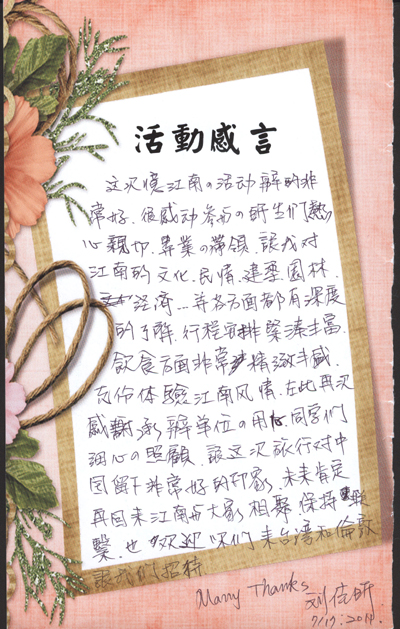 活動感言
这次憶江南の活动辦的非
常好，很感动参与の師生们熱
心親切、專業の帶領，讓我对
江南的文化、民情、建築、園林、
经济…并各方面都有深度
的了解，行程安排緊湊丰富，
飲食方面非常精致丰盛，
充份体驗江南风情，在此再次
感謝承辦单位の用心，同学们
細心の照顧，讓这次旅行对中
国留下非常好的印象，未来肯定
再回来江南与大家相聚，保持聯
繫，也欢迎你们来台灣和倫敦
讓我们招待
Many Thanks
刘佳妍
7/19.2014.